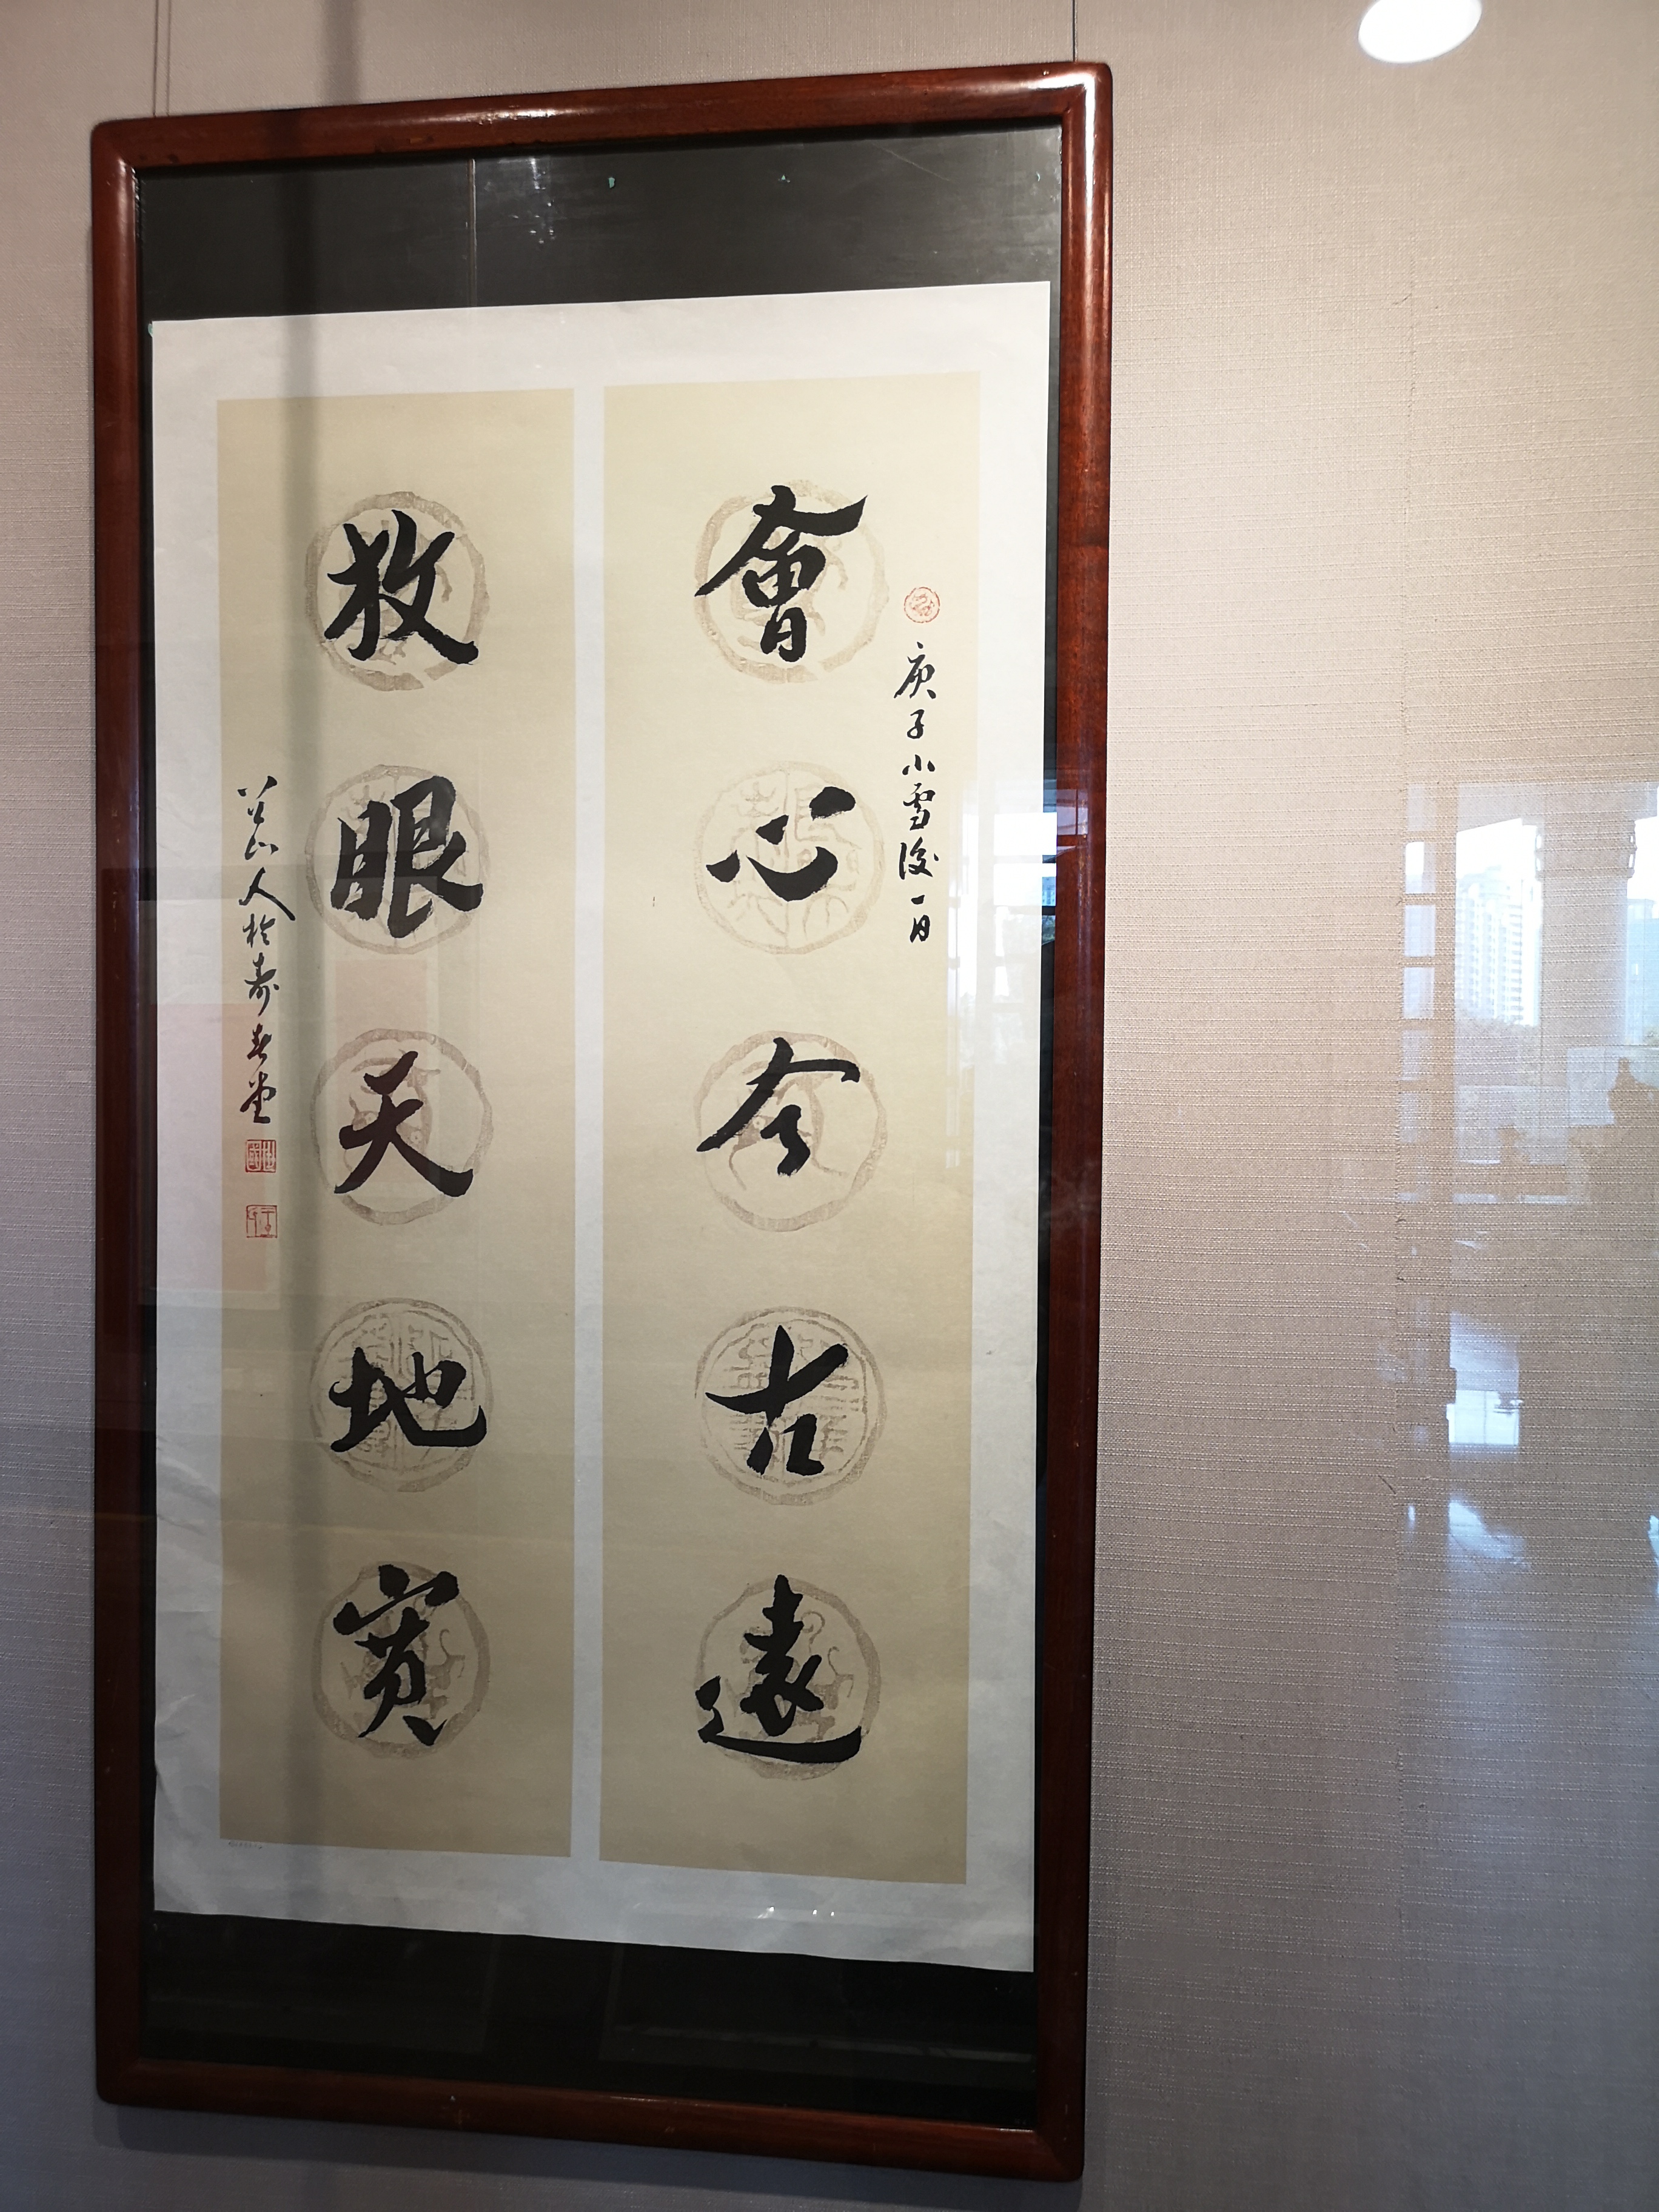 會心今古遠
庚子小雪後一月
放眼天地寬
山人於壽春堂